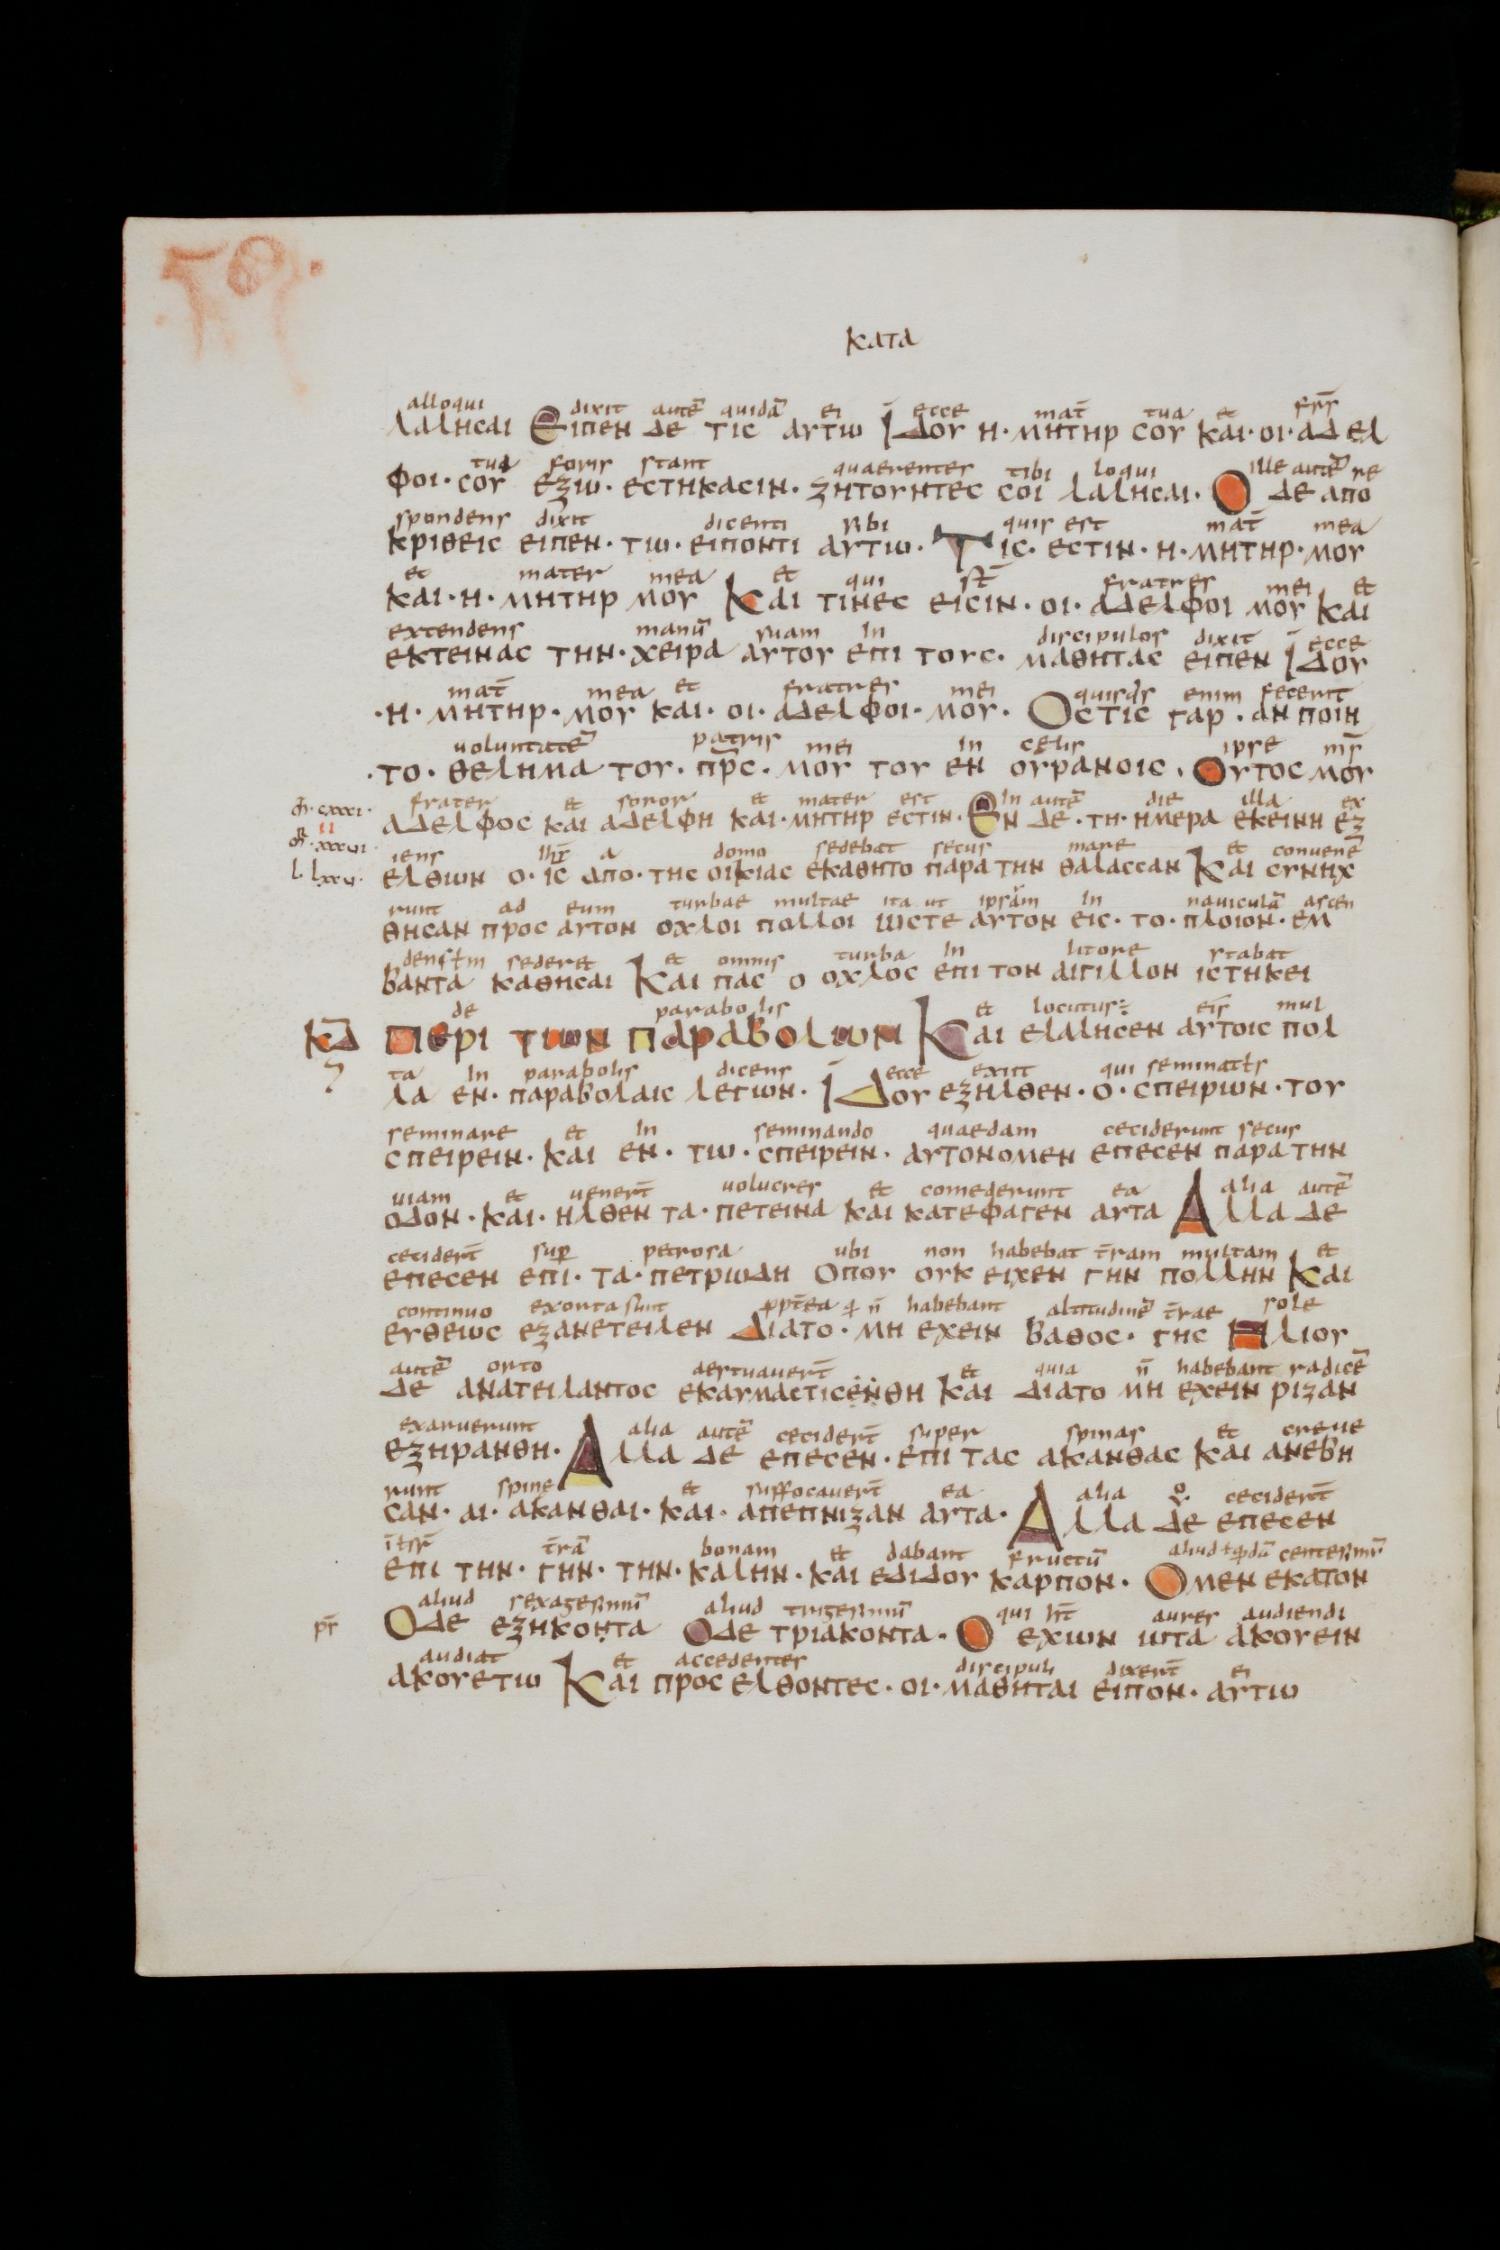 κατα
alloqui dixit autē quidā ei ecce mat̄ tua et frs̄
λαλησαι Ειπεν δε τις αυτω Ιδου η· μητηρ σου και· οι· αδελ
tua foris stant quaerentes tibi loqui ille autē re
φοι· σου εξω· εστηκασιν· ζητουντες σοι λαλησαι· Ο δε απο
spondens dixit dicenti sibi quis est mat̄ mea
κριθεις ειπεν· τω· ειποντι αυτω· Τις· εστιν· η· μητηρ· μου
et mater mea et qui st̄ fratres mei et
και· η· μητηρ μου Και τινες εισιν· οι· αδελφοι μου και
extendens manū suam in discipulos dixit ecce
εκτεινας την· χειρα αυτου επι τους· μαθητας ειπεν Ιδου
mat̄ mea et fratres mei quisq̄s enim fecerit
·η· μητηρ· μου και· οι· αδελφοι· μου· Οστις γαρ· αν ποιη
uoluntatē patris mei in cēlis ipse ms̄
·το· θελημα του· πρ̄ς· μου του εν ουρανοις· Ουτος μου
frater et soror et mater est In autē die illa ex
αδελφος και αδελφη και· μητηρ εστιν· Εν δε· τη· ημερα εκεινη εξ
iens ih̄s a domo sedebat secus mare et conuenē
ελθων ο· ις απο· της οικιας εκαθητο παρα την θαλασσαν Και συνηχ
runt ad eum turbae multae ita ut ipsam in nauiculā ascen
θησαν προς αυτον οχλοι πολλοι ωστε αυτον εις· το· πλοιον· εμ
sederet et omnis turba in litore stabat
βαντα καθησαι Και πας ο οχλος επι τον αιγιλλον ιστηκει
de parabolis et locutus÷ eis̄ mul
ΚΔ Περι των παραβολων Και ελαλησεν αυτοις πολ
ta in parabolis dicens ecce exiit qui seminat
λα εν· παραβολαις λεγων· Ιδου εξηλθεν· ο· σπειρων· του
seminare et in seminando quaedam ceciderunt secus
σπειρειν· και εν· τω· σπειρειν· αυτονομεν επεσεν παρα την
uiam et uenert̄ uolucres et comederunt ea alia autē
οδον· και· ηλθεν τα· πετεινα και κατεφαγεν αυτα Αλλα δε
cecidert̄ sup̄ petrosa ubi non habebat tr̄am multam et
επεσεν επι· τα· πετρωδη Οπου ουκ ειχεν γην πολλην Και
continuo exorta sunt ppt̄ea q n̄ habebant altitudinē tr̄ae sole
ευθεως εξανετειλεν Διατο· μη εχειν βαθος· γης Ηλιου
autē orto aestuauert̄ et quia n̄ habebant radicē
δε ανατειλαντος εκαυμαστισενθη Και διατο μη εχειν ριζαν
exaruerunt alia autē cecidert̄ super spinas et creue
εξηρανθη· Αλλα δε επεσεν· επι τας ακανθας και ανεβη
runt spine et suffocauert̄ ea alia cecidert̄
σαν· αι· ακανθαι· και· απεπνιξαν αυτα· Αλλα δε επεσεν
tr̄ā bonam et dabant fructū centesimū
επι την· γην· την· καλην· και εδιδου καρπον· Ομεν εκατον
aliud sexagesimū aliud trigesimū qui ht̄ aures audiendi
Οδε εξηκοντα Οδε τριακοντα· Ο εχων ωτα ακουειν
audiat et accedentes discipuli dixert̄ ei
ακουετω Και προς ελθοντες· οι· μαθηται ειπον· αυτω